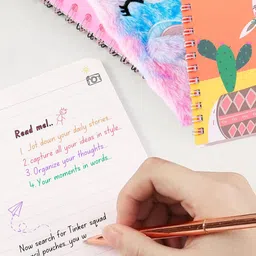 Read me!..
1. Jot down your daily stories.
2. capture all your ideas in style.
3. Organize your thoughts.
4. Your moments in words..
Now search for Tinker squad
ard pouches..you w